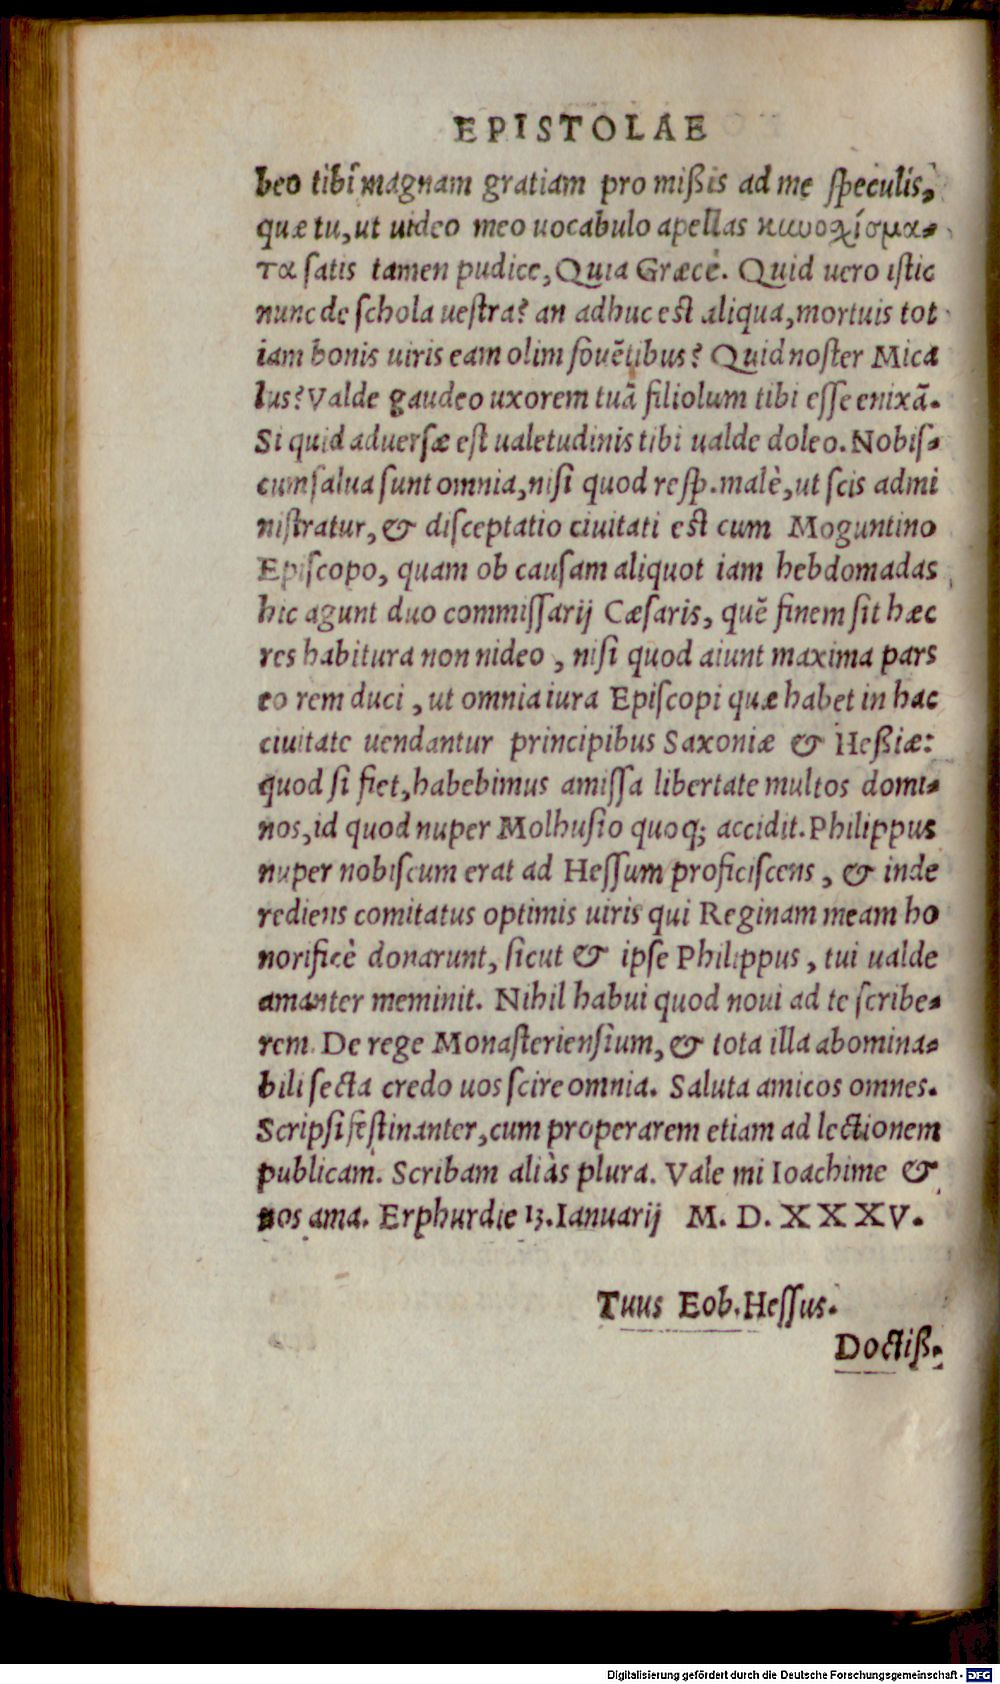 EPISTOLAE
beo tibi magnam gratiam pro mißis ad me speculis,
quæ tu, ut uideo meo uocabulo apellas
τα satis tamen pudice, Quia Græcè. Quid uero istic
nunc de schola uestra? an adhuc est aliqua, mortuis tot
iam bonis uiris eam olim fouẽtibus? Quid noster Mica
lus? Valde gaudeo uxorem tuã filiolum tibi esse enixã.
Si quid aduersæ est ualetudinis tibi ualde doleo. Nobis-
cum salua sunt omnia, nisi quod resp. malè, ut scis admi
nistratur, & disceptatio ciuitati est cum Moguntino
Episcopo, quam ob causam aliquot iam hebdomadas
hic agunt duo commissarij Cæsaris, quẽ finem sit hæc
res habitura non nideo, nisi quod aiunt maxima pars
eo rem duci, ut omnia iura Episcopi quæ habet in hac
ciuitate uendantur principibus Saxoniæ & Heßiæ:
quod si fiet, habebimus amissa libertate multos domi-
nos, id quod nuper Molhusio quoq; accidit. Philippus
nuper nobiscum erat ad Hessum proficiscens, & inde
rediens comitatus optimis uiris qui Reginam meam ho
norificè donarunt, sicut & ipse Philippus, tui ualde
amanter meminit. Nihil habui quod noui ad te scribe-
rem. De rege Monasteriensium, & tota illa abomina-
bili secta credo uos scire omnia. Saluta amicos omnes.
Scripsi festinanter, cum properarem etiam ad lectionem
publicam. Scribam aliàs plura. Vale mi Ioachime &
nos ama. Erphurdie 13. Ianuarij M. D. XXXV.
Tuus Eob. Hessus.
Doctiß.
Digitalisierung gefördert durch die Deutsche Forschungsgemeinschaft - DFG